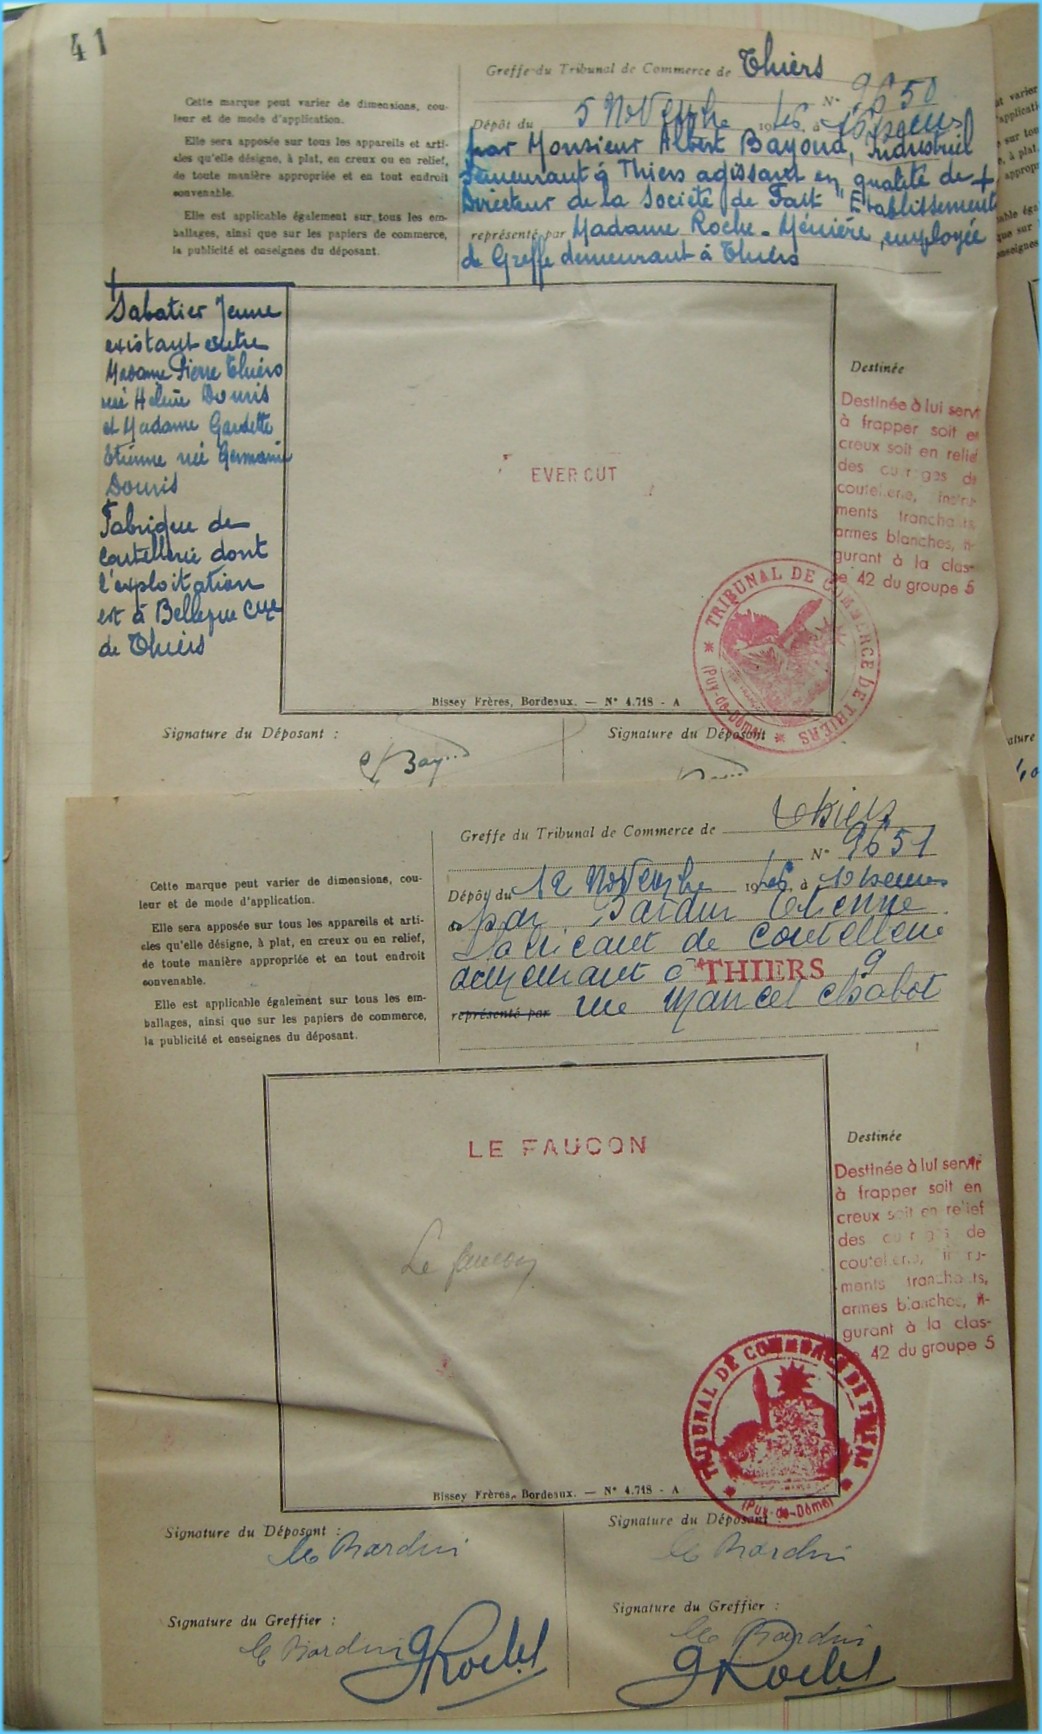 41
Greffe du Tribunal de Commerce de Thiers
N° 9650
Dépôt du 5 Novembre 1946, à 15 heures
par Monsieur Albert Bayoud, Industriel
demeurant à Thiers agissant en qualité de +
Directeur de la Société de Fait "Etablissements
représenté par Madame Roche-Ménière, employée
de Greffe demeurant à Thiers
Cette marque peut varier de dimensions, cou-
leur et de mode d'application.
Elle sera apposée sur tous les appareils et arti-
cles qu'elle désigne, à plat, en creux ou en relief,
de toute manière appropriée et en tout endroit
convenable.
Elle est applicable également sur tous les em-
ballages, ainsi que sur les papiers de commerce,
la publicité et enseignes du déposant.
+
Sabatier Jeune
existant entre
Madame Pierre Thiers
née Hélène Douris
et Madame Gardette
Etienne née Germaine
Douris
Fabrique de
Coutellerie dont
l'exploitation
est à Bellevue Cne
de Thiers
EVER CUT
Destinée
Destinée à lui servir
à frapper soit en
creux soit en relief
des ouvrages de
coutellerie, instru-
ments tranchants,
armes blanches, fi-
gurant à la clas-
se 42 du groupe 5
TRIBUNAL DE COMMERCE DE THIERS
(Puy-de-Dôme)
Bissey Frères, Bordeaux. — N° 4.718 - A
Signature du Déposant :
Signature du Déposant
Greffe du Tribunal de Commerce de Thiers
N° 9651
Dépôt du 12 Novembre 1946, à 10 heures
par Bardin Etienne
Fabricant de coutellerie
demeurant à THIERS 9
représenté par rue Marcel Chabot
Cette marque peut varier de dimensions, cou-
leur et de mode d'application.
Elle sera apposée sur tous les appareils et arti-
cles qu'elle désigne, à plat, en creux ou en relief,
de toute manière appropriée et en tout endroit
convenable.
Elle est applicable également sur tous les em-
ballages, ainsi que sur les papiers de commerce,
la publicité et enseignes du déposant.
LE FAUCON
Le faucon
Destinée
Destinée à lui servir
à frapper soit en
creux soit en relief
des ouvrages de
coutellerie, instru-
ments tranchants,
armes blanches, fi-
gurant à la clas-
42 du groupe 5
TRIBUNAL DE COMMERCE DE THIERS
(Puy-de-Dôme)
Bissey Frères, Bordeaux. — N° 4.718 - A
Signature du Déposant :
Signature du Déposant
Signature du Greffier :
Signature du Greffier :